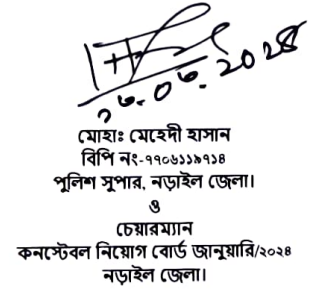 ২৬.০৬.২০২৪
মোহাঃ মেহেদী হাসান
বিপি নং-৭৭০৬১১৯৭১৪
পুলিশ সুপার, নড়াইল জেলা।
ও
চেয়ারম্যান
কনস্টেবল নিয়োগ বোর্ড জানুয়ারি/২০২৪
নড়াইল জেলা।